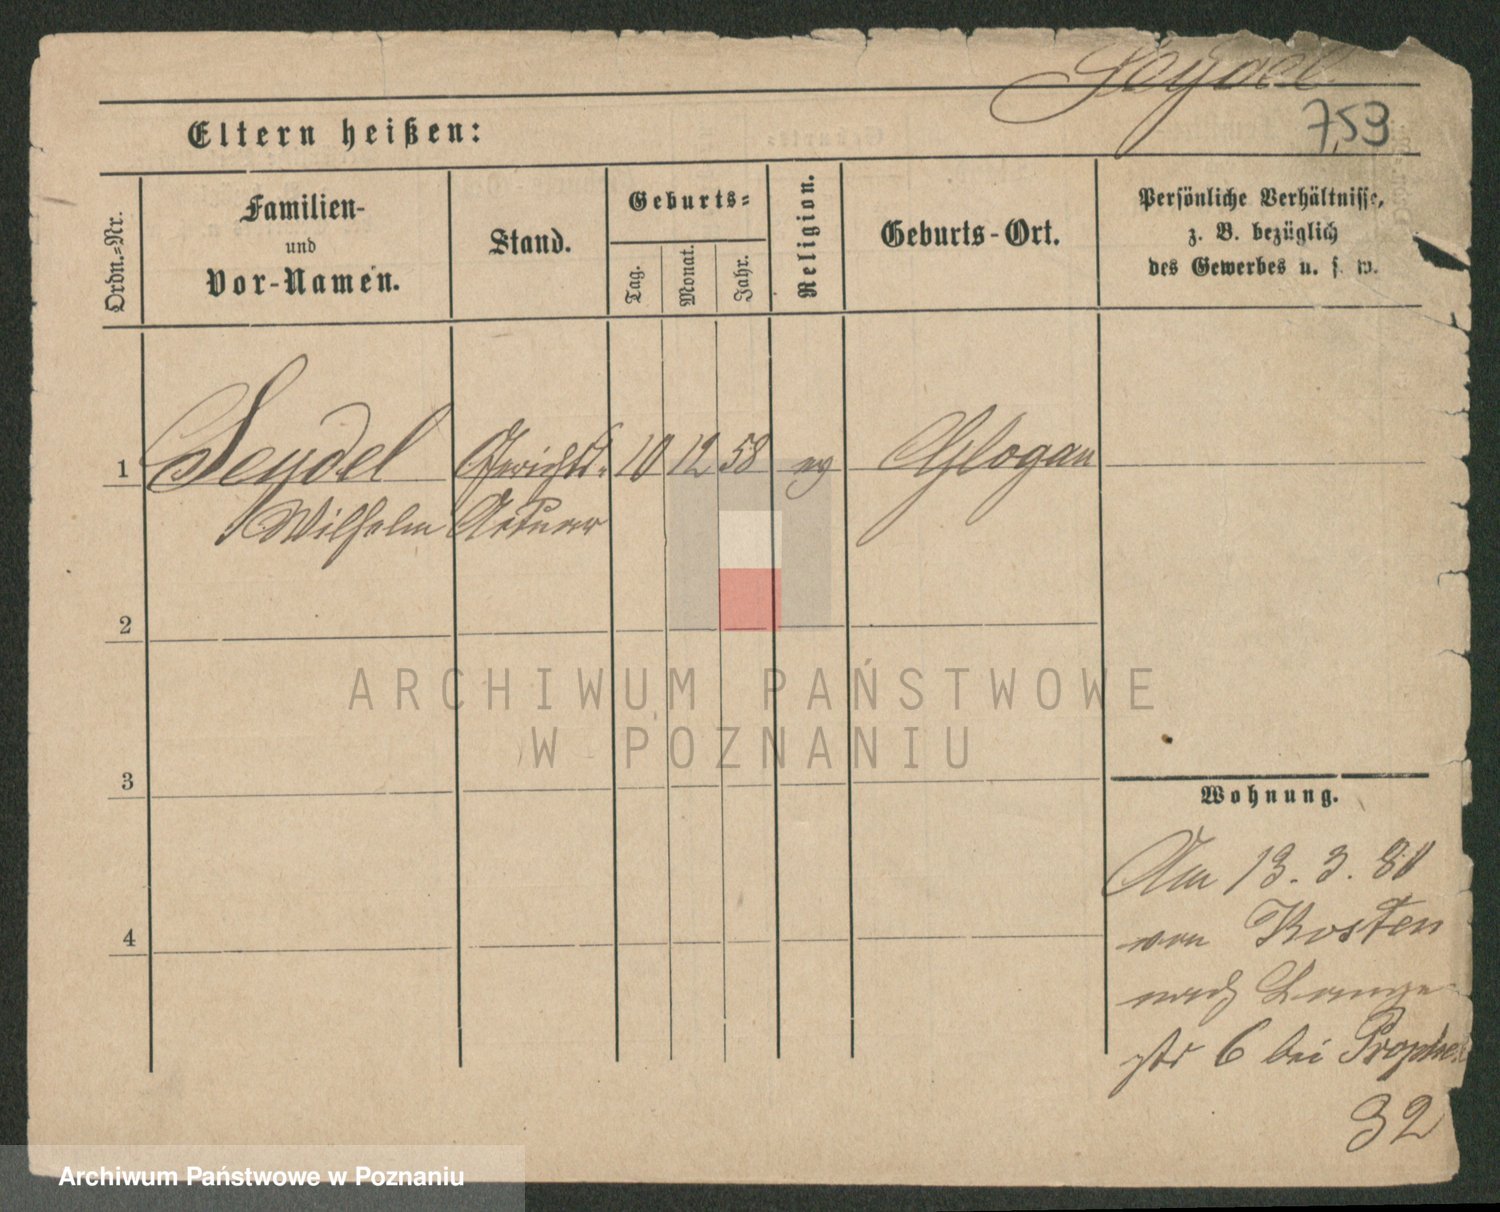 Seydel
753
Eltern heißen:
Ordn.=Nr.
Familien-
und
Vor-Namen.
Stand.
Geburts=
Tag.
Monat.
Jahr.
Religion.
Geburts-Ort.
Persönliche Verhältnisse,
z. B. bezüglich
des Gewerbes u. s. w.
1 Seydel Gerichts- 10 12 58 ev Glogau
Wilhelm Actuar
2
3
4
Wohnung.
Am 13. 3. 81
von Kosten
nach Lange
str 6 bei Prophet
32
ARCHIWUM PAŃSTWOWE
W POZNANIU
Archiwum Państwowe w Poznaniu